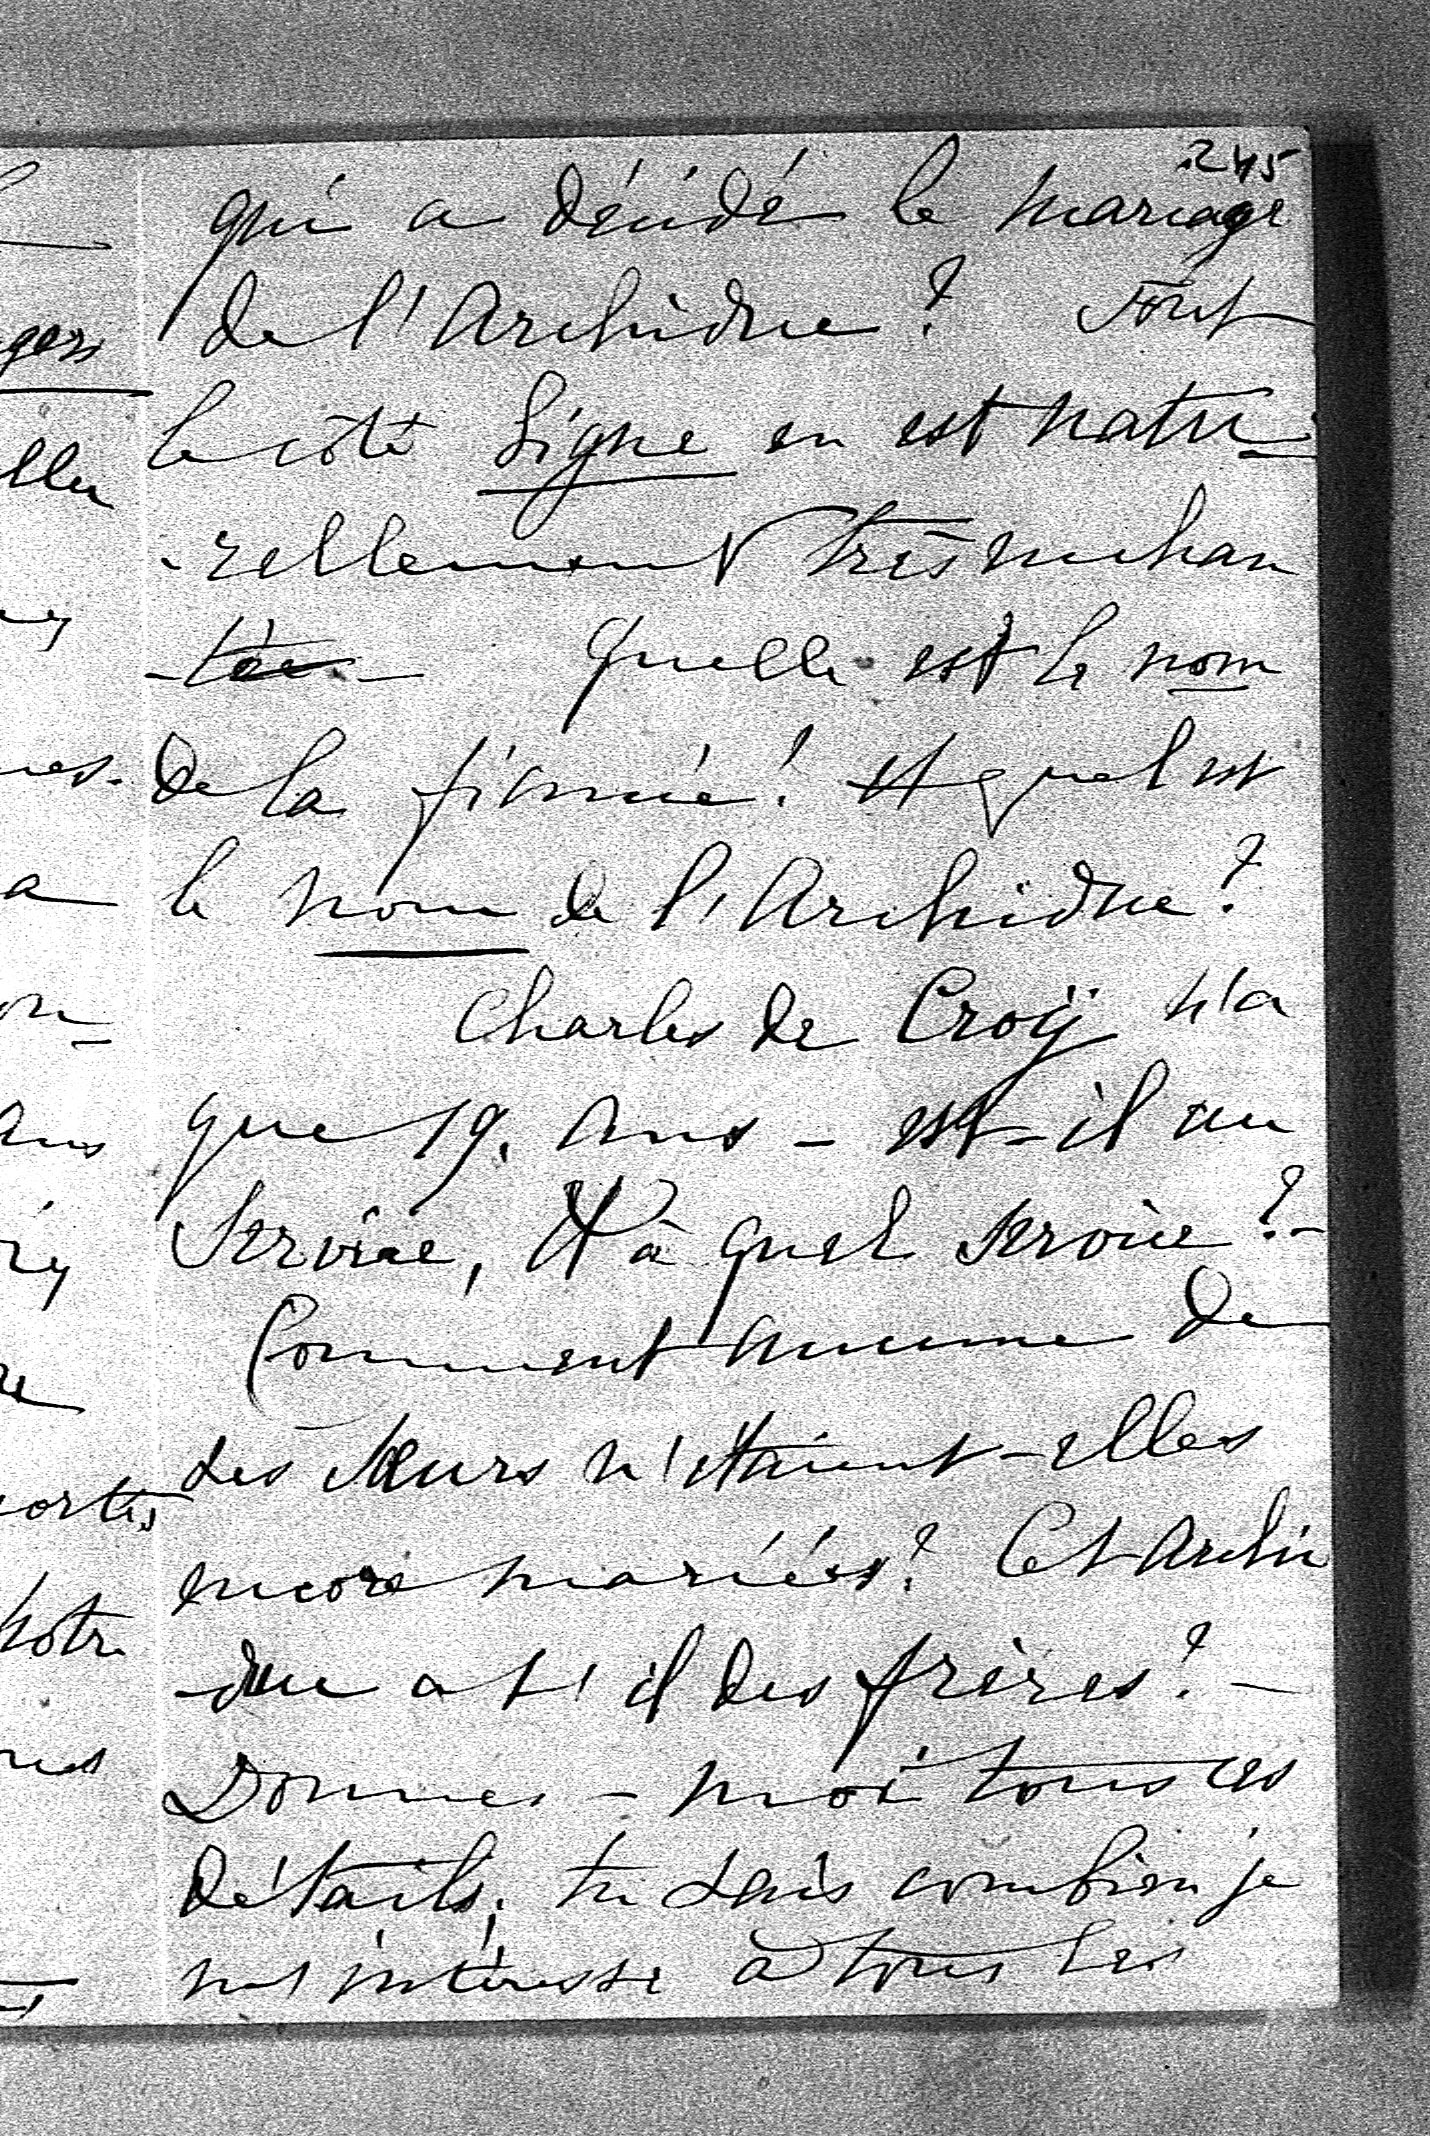 245
qui a décidé le mariage
de l'Archiduc? Tout
le côté Ligne en est natu-
-rellement très enchan
-tée. — Quelle est le nom
de la fiancée! et quel est
le nom de l'Archiduc?
Charles de Croÿ n'a
que 19. ans - est-il au
Service, et à quel service? -
Comment aucune de
ses sœurs n'étaient-elles
encore mariées? Cet Archi
-duc a t'il des frères? -
Donnes-moi tous ces
détails, tu sais combien je
m'intéresse à tous les